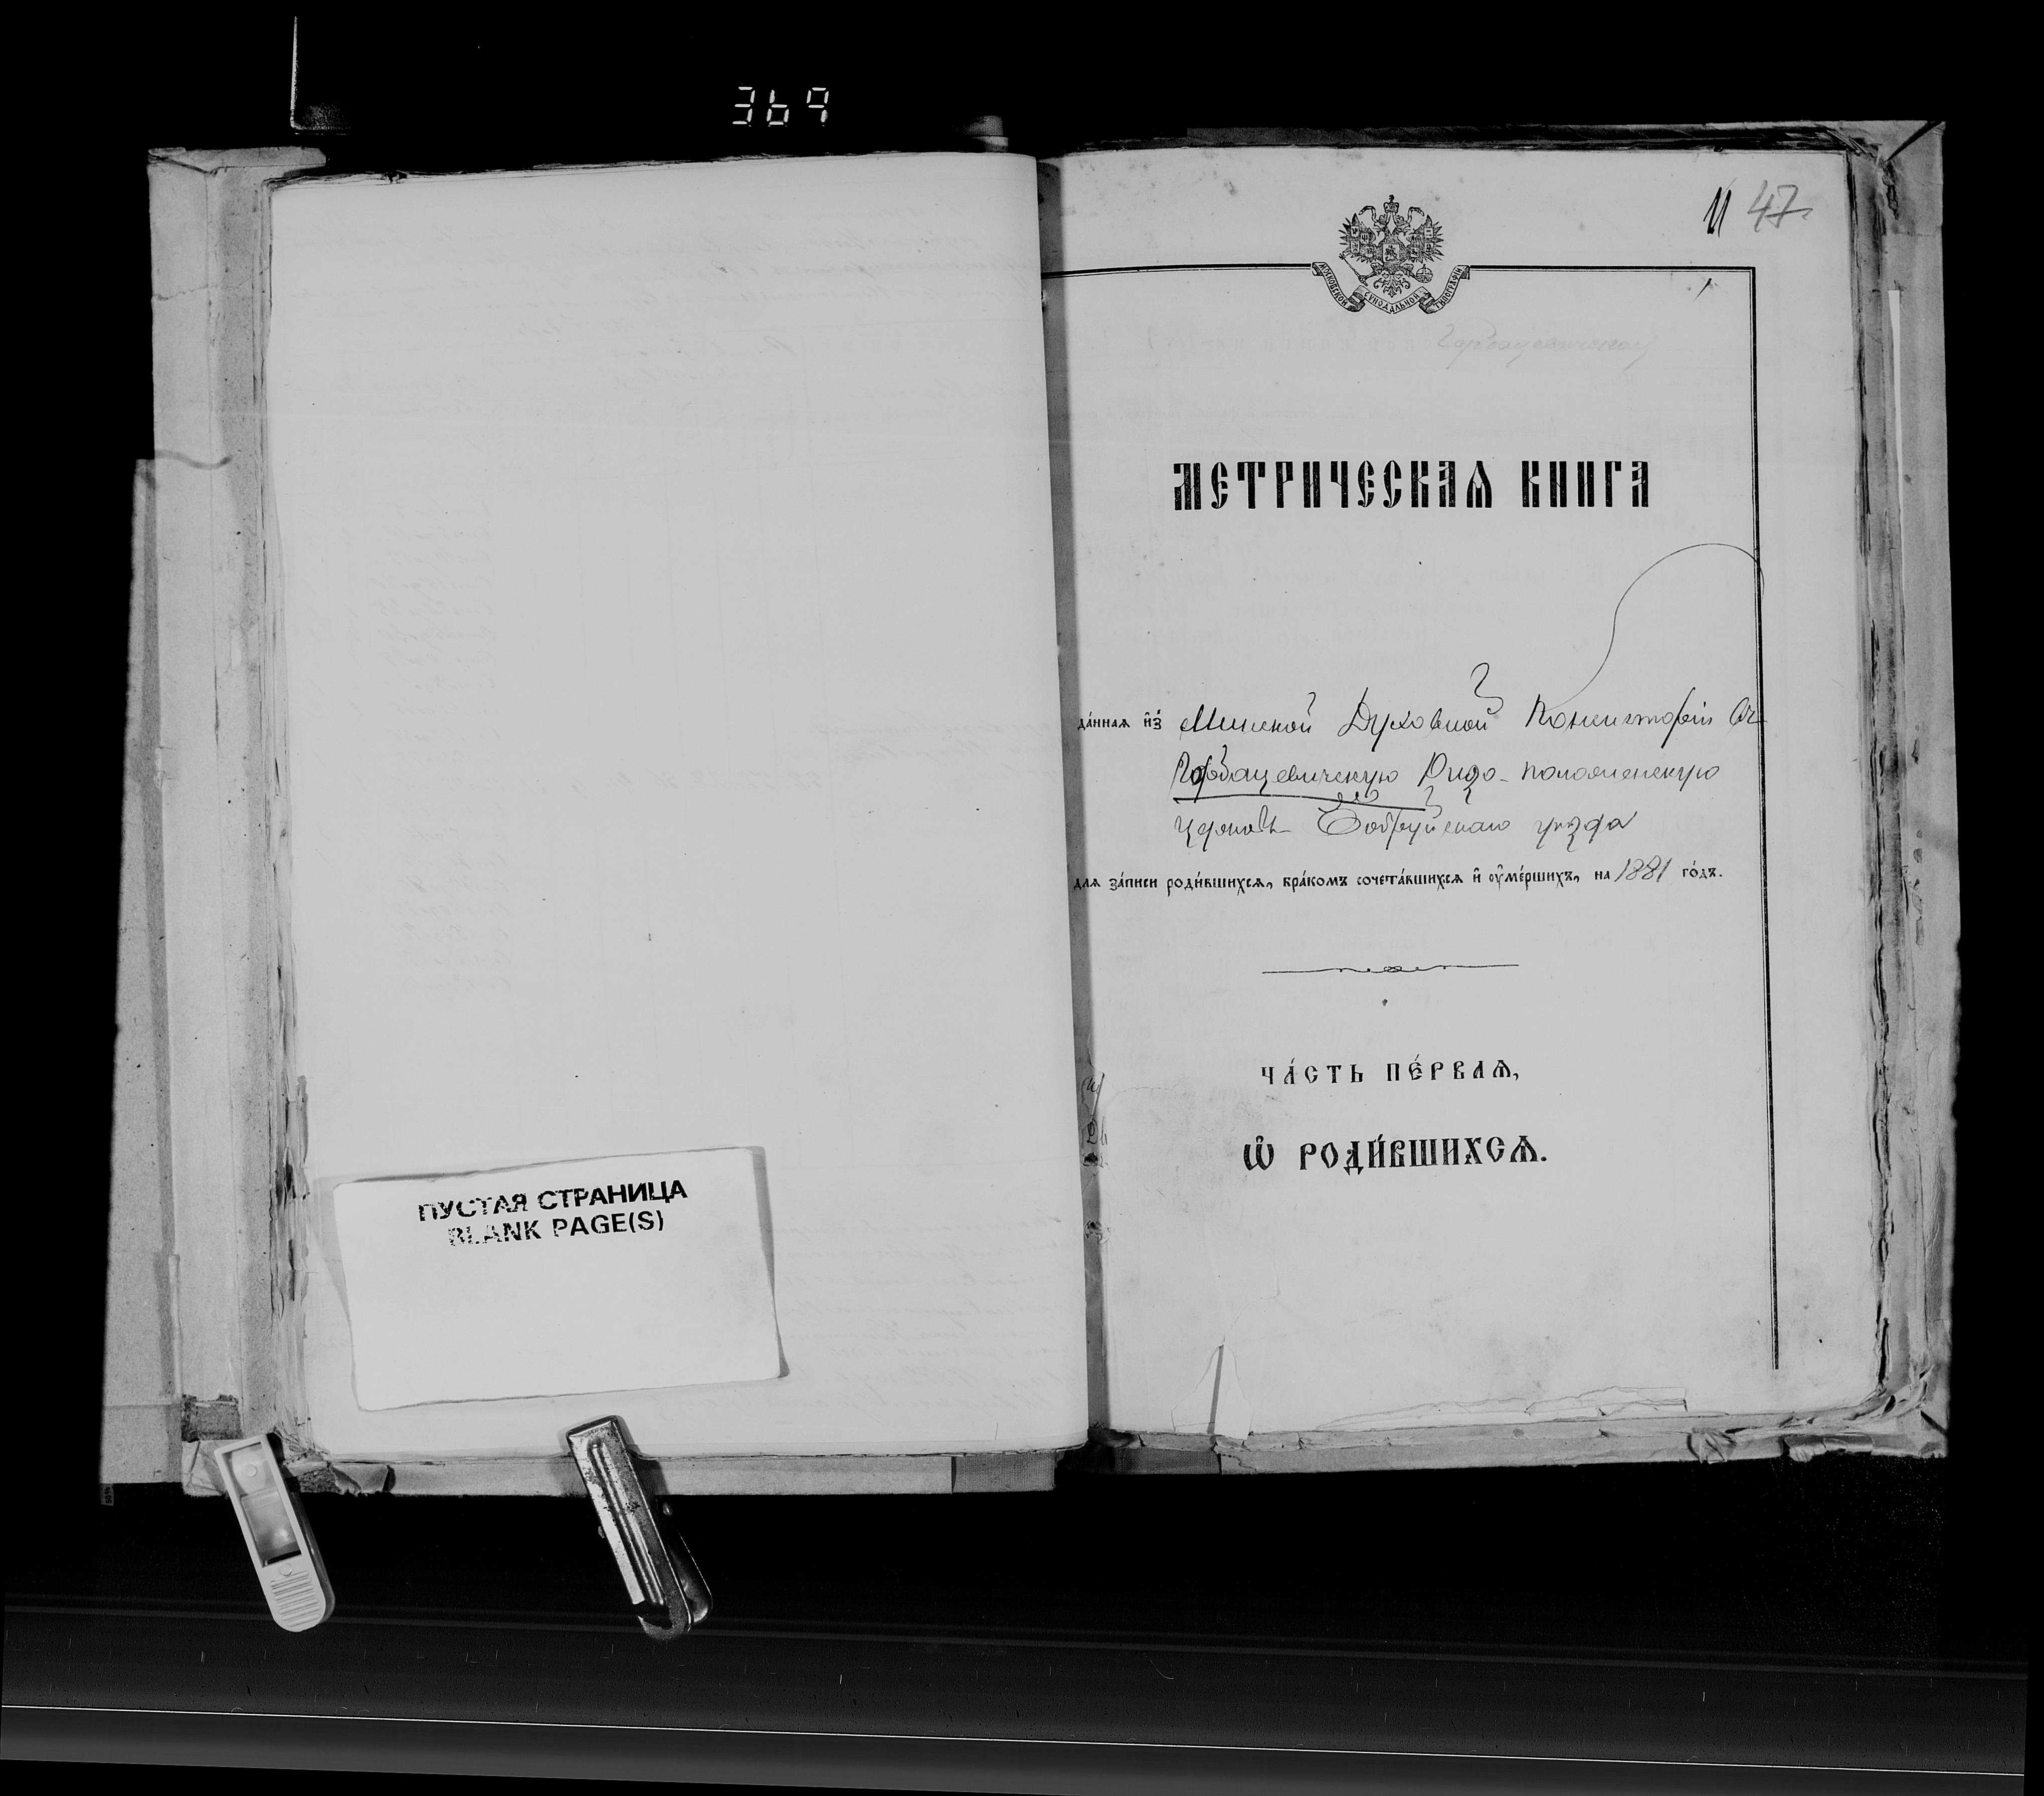 369
ПУСТАЯ СТРАНИЦА
BLANK PAGE(S)
47
МОСКОВСКОЙ СѴНОДАЛЬНОЙ ТИПОГРАФІИ
МЕТРИЧЕСКАѦ КНИГА
да́ннаѧ и҆з̾ Минской Духовной Консисторіи въ
Горбацевичскую Ризо-положенскую
церковь Бобруйскаго уѣзда
длѧ за́писи роди́вшихсѧ, бра́комъ сочета́вшихсѧ и҆ ᲂу҆ме́ршихъ, на 1881 го́дъ.
ЧА́СТЬ ПЕ́РВАѦ,
Ѡ҆ РОДИ́ВШИХСѦ.